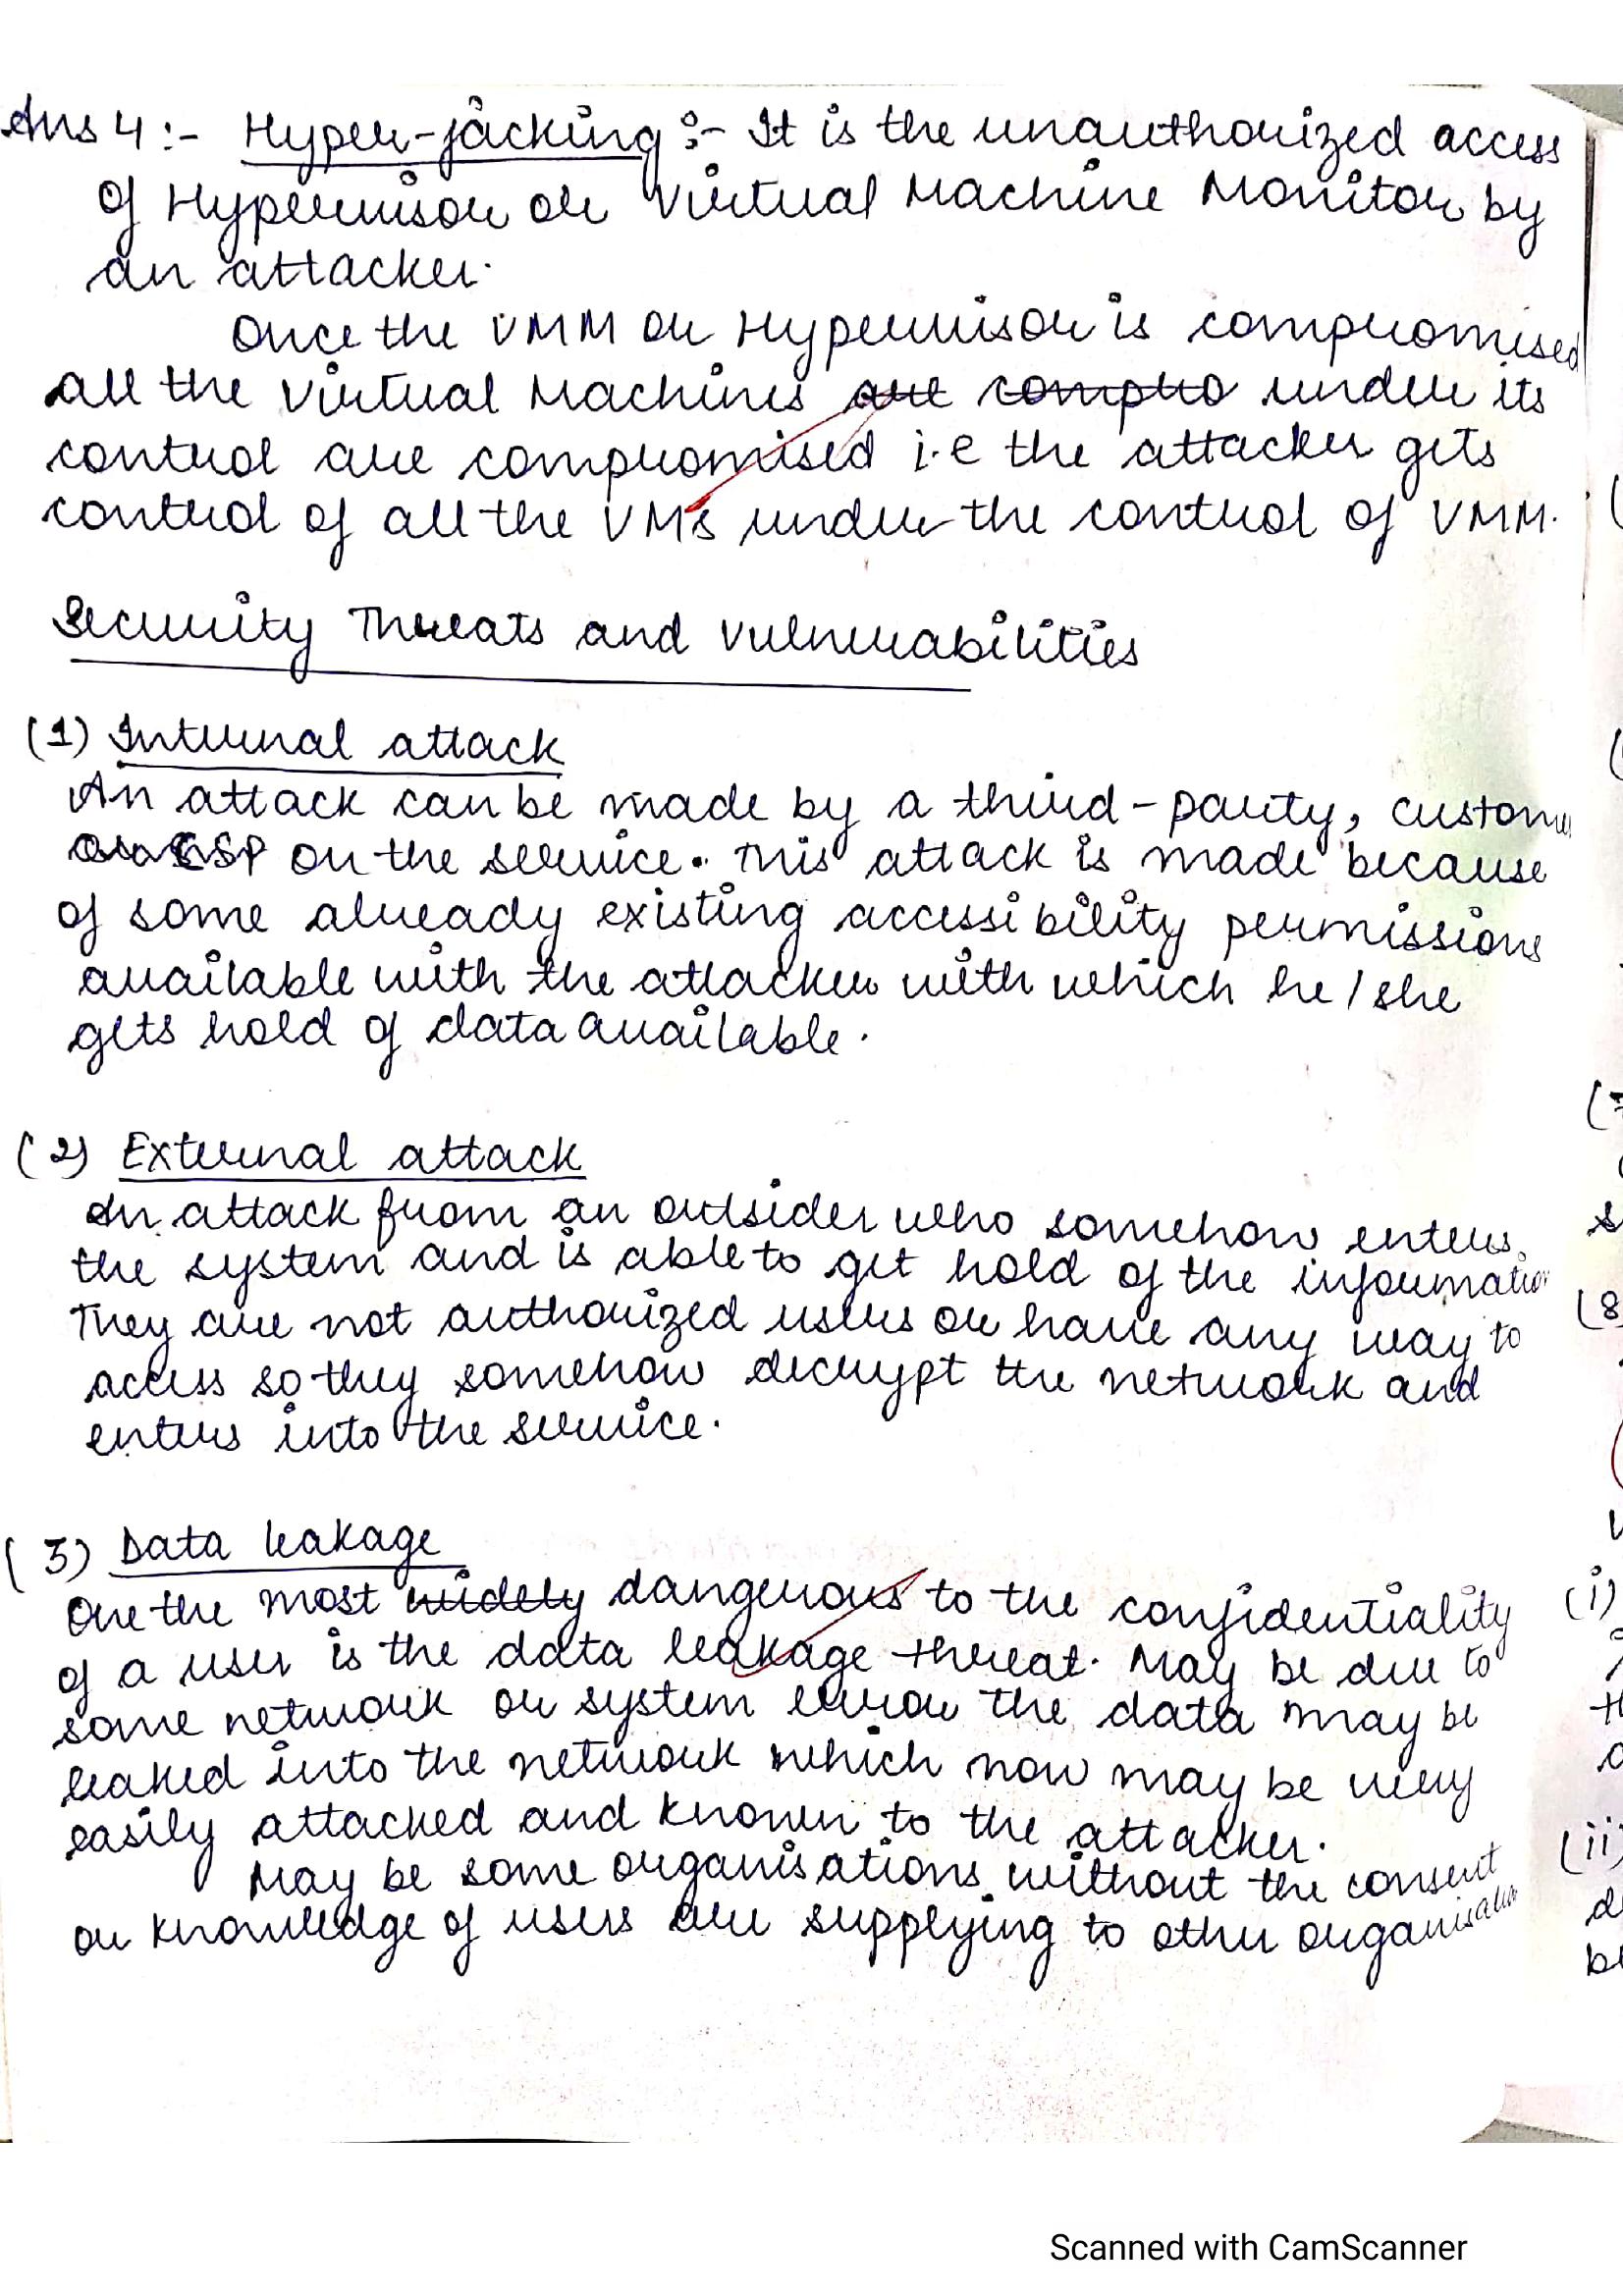 Ans 4 :- Hyper-jacking :- It is the unauthorized access
of Hypervisor or Virtual Machine Monitor by
an attacker.
Once the VMM or Hypervisor is compromised
all the Virtual Machines are compro under its
control are compromised i.e the attacker gets
control of all the VMs under the control of VMM.
Security Threats and Vulnerabilities
(1) Internal attack
An attack can be made by a third-party, customer
CSP on the service. This attack is made because
of some already existing accessibility permissions
available with the attacker with which he/she
gets hold of data available.
(2) External attack
An attack from an outsider who somehow enters
the system and is able to get hold of the information
They are not authorized users or have any way to
access so they somehow decrypt the network and
enters into the service.
(3) Data leakage
One the most widely dangerous to the confidentiality
of a user is the data leakage threat. May be due to
some network or system error the data may be
leaked into the network which now may be very
easily attacked and known to the attacker.
May be some organisations without the consent
or knowledge of users are supplying to other organisation
(8
(i)
(ii)
Scanned with CamScanner